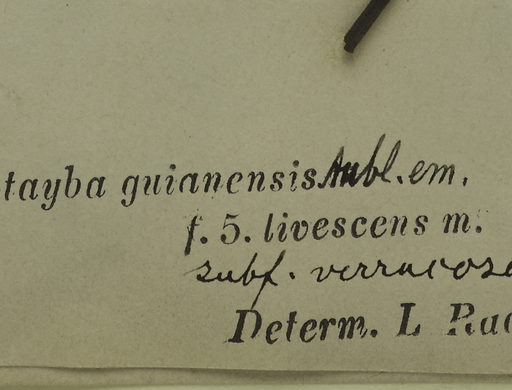 tayba guianensis Aubl. em.
f. 5. livescens m.
subf. verrucosa
Determ. L Rad